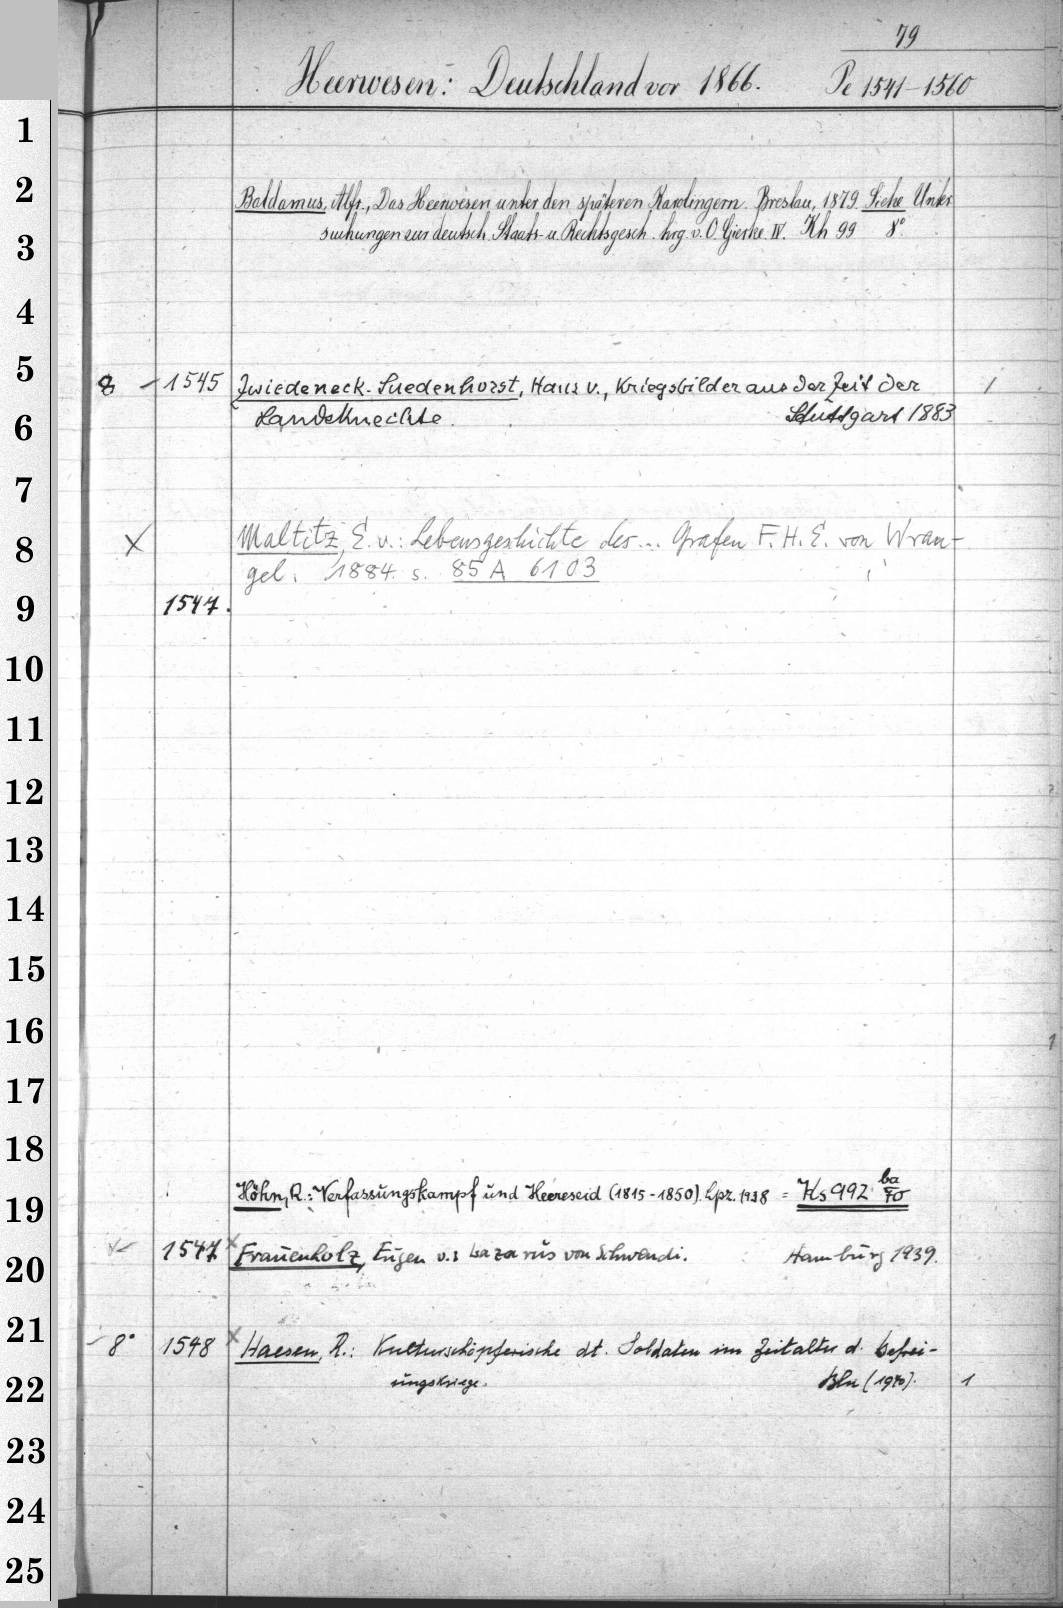 79
Heerwesen: Deutschland vor 1866. Pe 1541-1560
1
2
Baldamus, Alfr., Das Heerwesen unter den späteren Karolingern. Breslau, 1879. Siehe Unter
suchungen zur deutsch. Staats- u. Rechtsgesch. hrg. v. O. Gierke. IV. Kh 99 8°
3
4
5
8 - 1545 Zwiedeneck-Suedenhorst, Hans v., Kriegsbilder aus der Zeit der 1
Landsknechte. Stuttgart 1883
6
7
8
X Maltitz, E. v.: Lebensgeschichte des... Grafen F. H. E. von Wran-
gel. 1884. s. 85 A 6103
9
1547.
10
11
12
13
14
15
16
17
18
19
Höhn, R.: Verfassungskampf und Heereseid (1815-1850). Lpz. 1938 = Ks 992 ba/70
20
1547 x Frauenholz, Eugen v.: Lazarus von Schwendi. Hamburg 1939.
21
- 8° 1548 x Haesen, R.: Kulturschöpferische dt. Soldaten im Zeitalter d. Befrei-
22
ungskriege. Bln (1940). 1
23
24
25